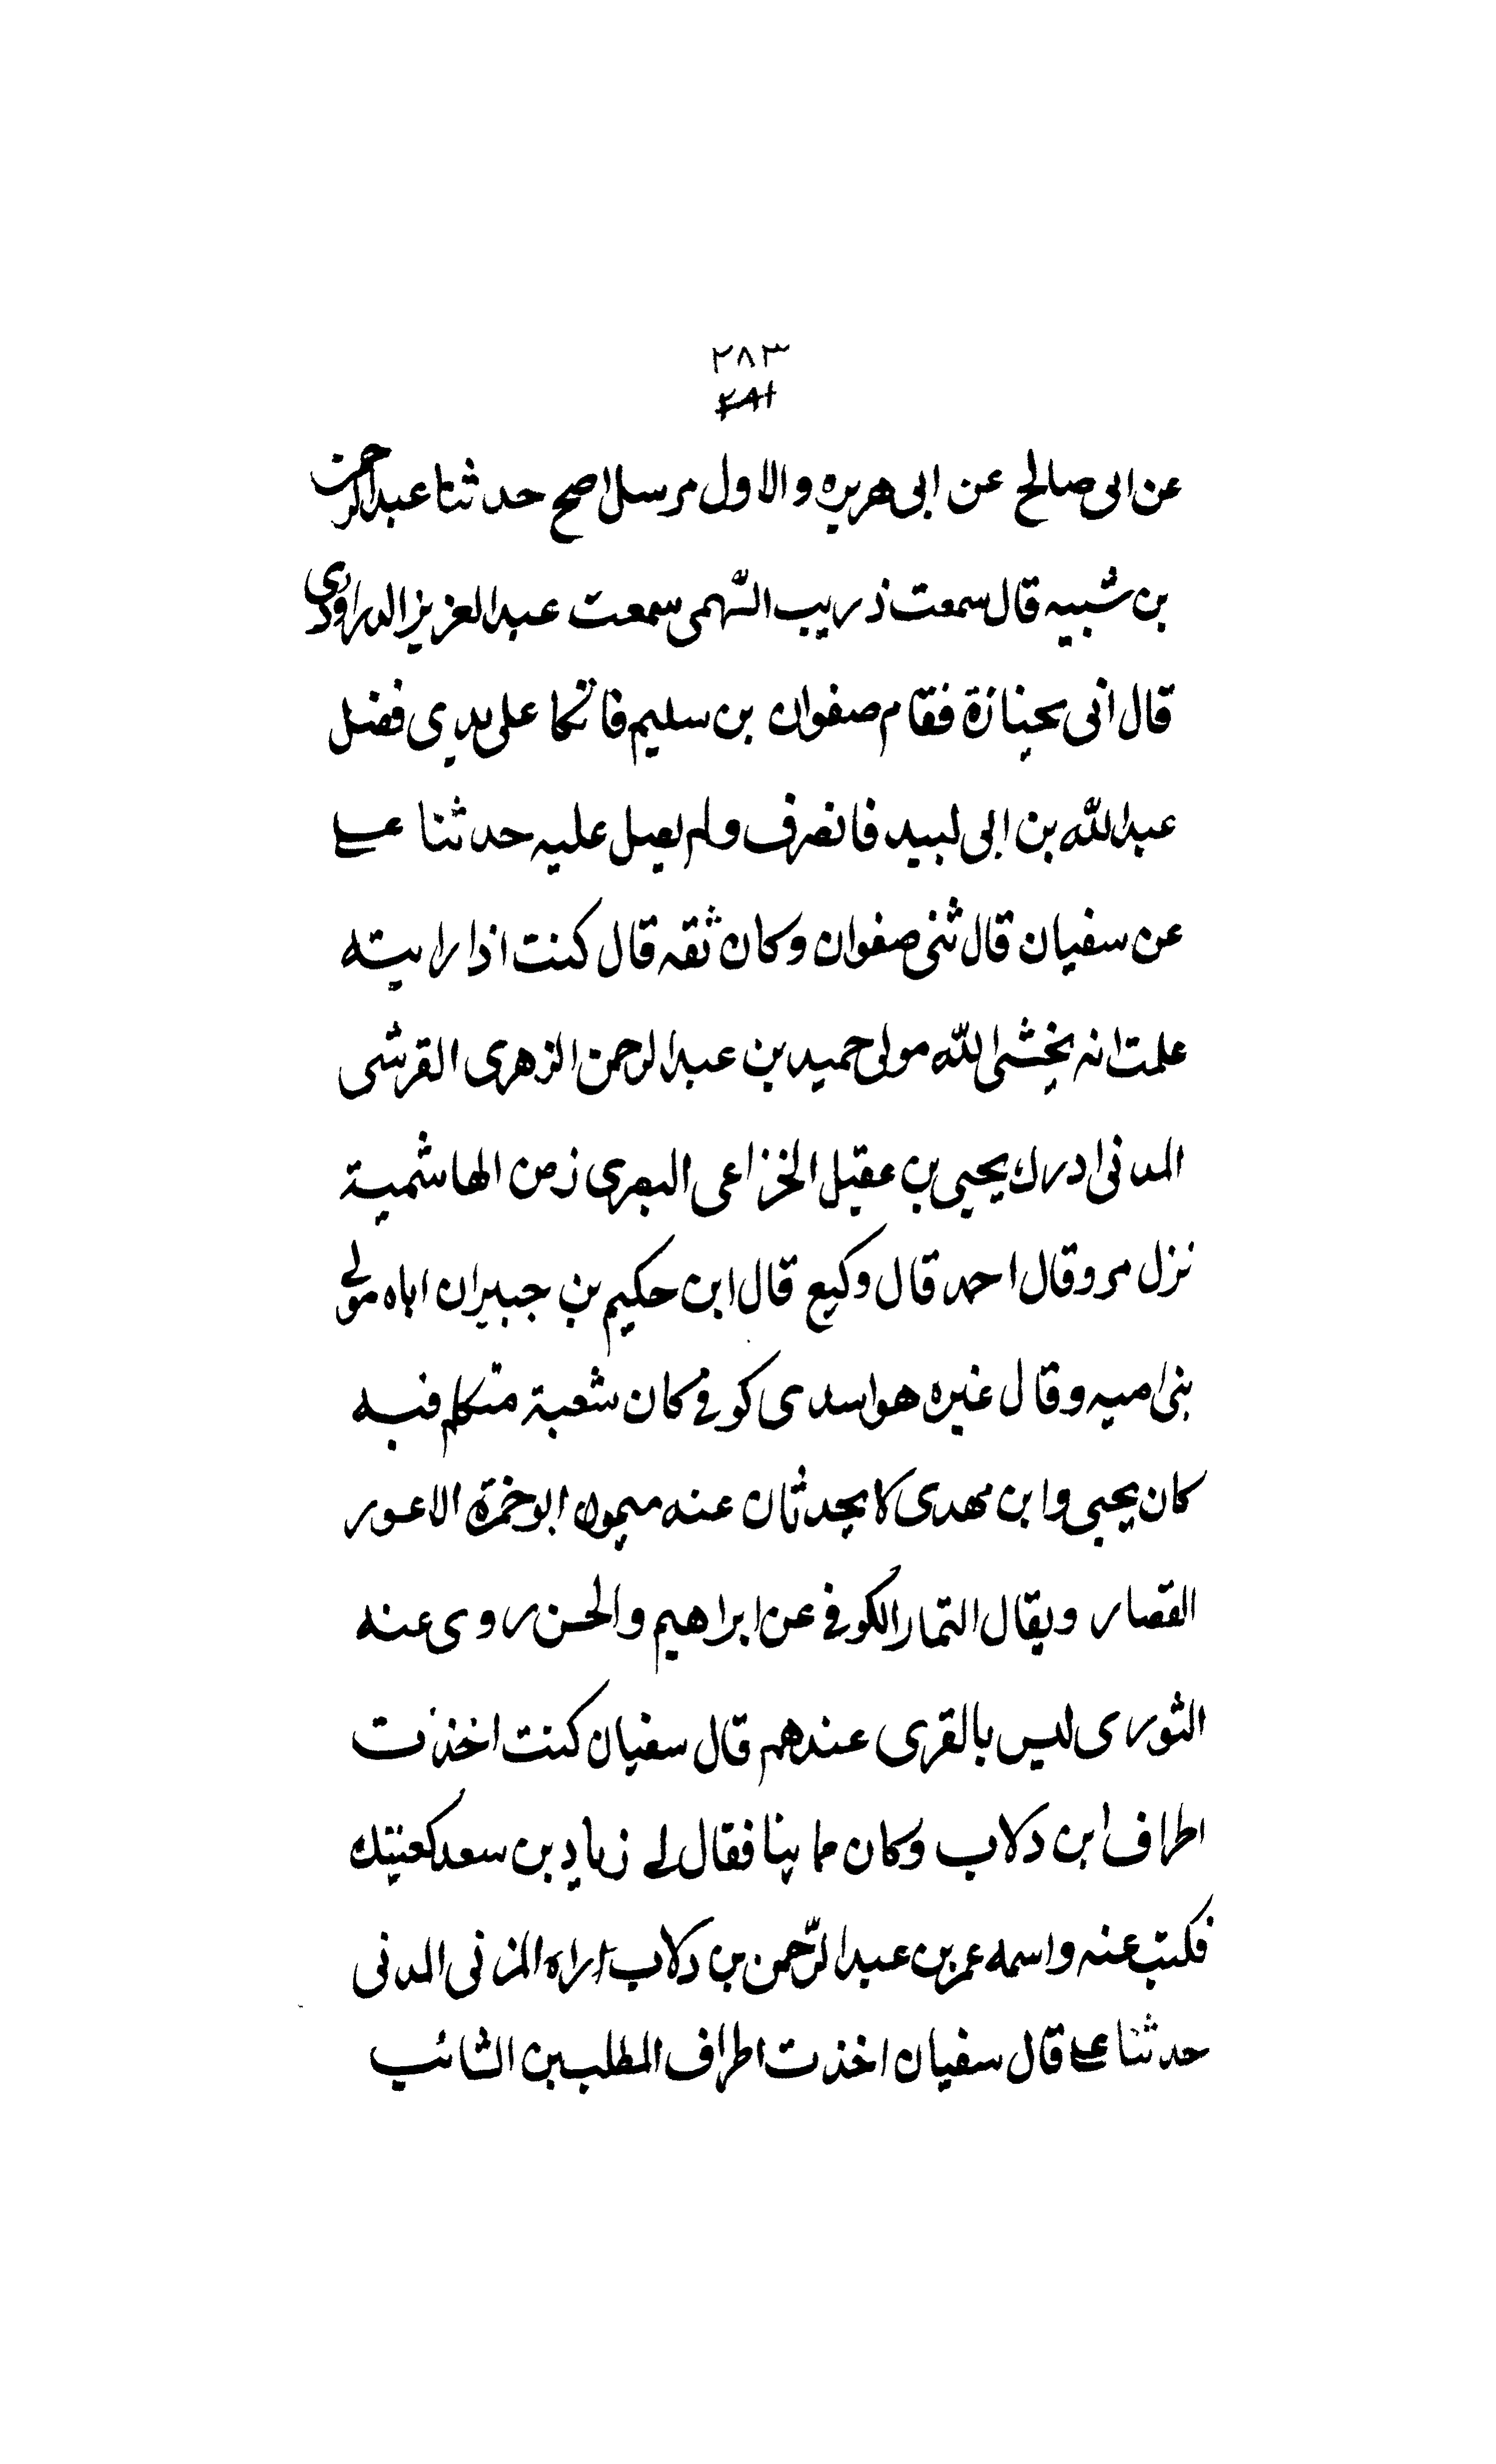 ٢٨٣
٢٨١
عن ابى صالح عن ابى هريره والاول مرسلا صح حدثنا عبدالرحمن
بن شيبه قال سمعت ذريب السّهمى سمعت عبدالعزيز الدراوردى
قال اتى بجنازة فقام صفوان بن سليم فاتكا على يدى فضل
عبدالله بن ابى لبيد فانصرف ولم يصل عليه حدثنا على
عن سفيان قال ثنى صفوان وكان ثقه قال كنت اذا رايته
علمت انه يخشى الله مولى حميد بن عبدالرحمن الزهرى القرشى
المدنى ادرك يحيى بن عقيل الخزاعى البصرى زمن الهاشمية
نزل مرو وقال احمد قال وكيع قال ابن حكيم بن جبيران اباه مولى
بنى اميه وقال غيره هو اسدى كوفى كان شعبة متكلم فيه
كان يحيى وابن مهدى لا يحدثان عنه ميمون ابو حمزة الاعور
القصار ويقال التمار الكوفى عن ابراهيم والحسن روى عنه
الثورى ليس بالقوى عندهم قال سفيان كنت اخذت
اطراف ابن دلاب وكان حاينا فقال لى زياد بن سعد كعنيتك
فكتب عنه واسمه عمر بن عبدالرّحمن بن دلاب اراه المزنى المدنى
حدثنا على قال سفيان اخذت اطراف المطلب بن السائب